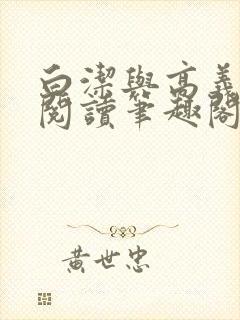 白潔與高義
閱讀筆趣閣
黃世忠